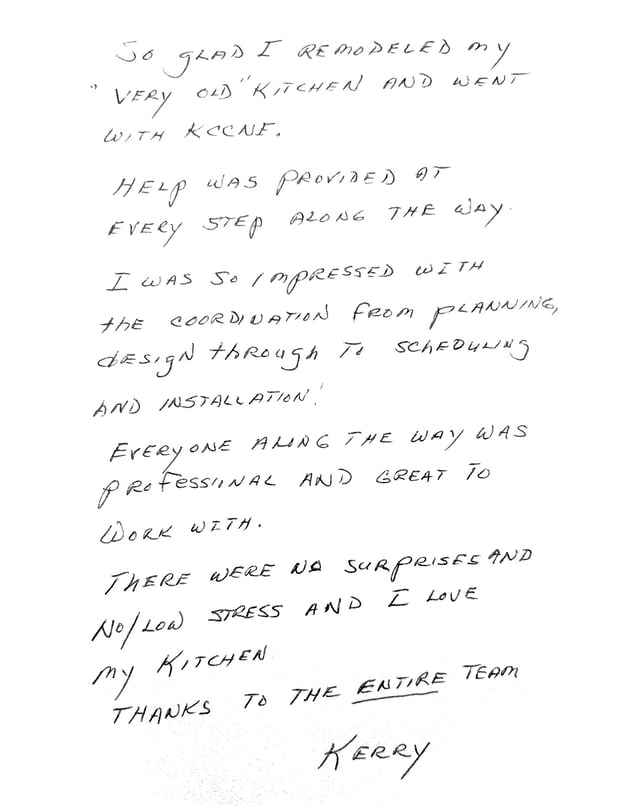 So GLAD I REMODELED my
"VERY OLD" KITCHEN AND WENT
WITH KCCNE.
HELP WAS PROVIDED AT
EVERY STEP ALONG THE WAY.
I WAS So IMPRESSED WITH
the COORDINATION FROM PLANNING,
dESIgN thROugh To SchEDULING
AND INSTALLATION!
EVERYONE ALONG THE WAY WAS
PROFESSIONAL AND GREAT TO
WORK WITH.
THERE WERE NO SURPRISES AND
NO/LOW STRESS AND I LOVE
my KITCHEN
THANKS TO THE ENTIRE TEAM
KERRY